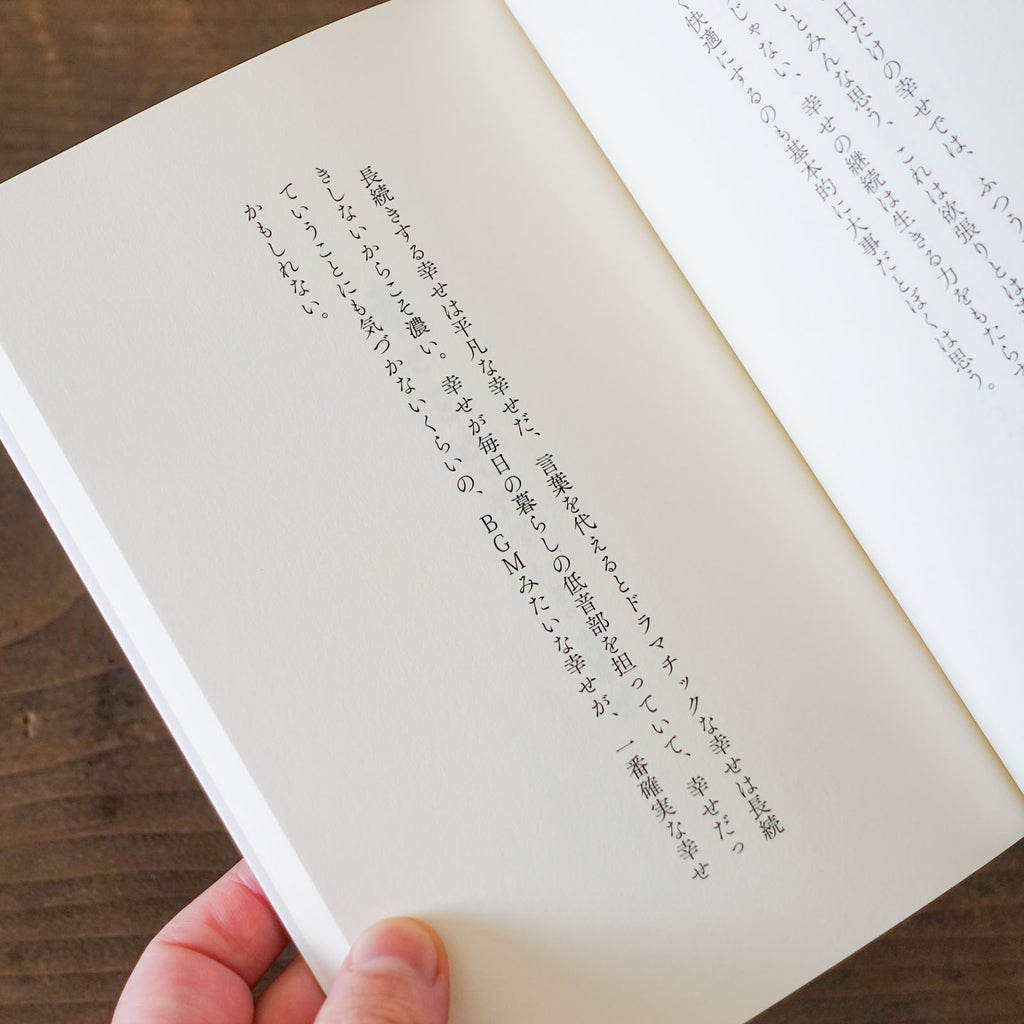 日だけの幸せでは、ふつう
いとみんな思う、これは欲張りとは
じゃない、幸せの継続は生きる力をもたらす
く快適にするのも基本的に大事だとぼくは思う。
長続きする幸せは平凡な幸せだ、言葉を代えるとドラマチックな幸せは長続
きしないからこそ濃い。幸せが毎日の暮らしの低音部を担っていて、幸せだっ
ていうことにも気づかないくらいの、BGMみたいな幸せが、一番確実な幸せ
かもしれない。